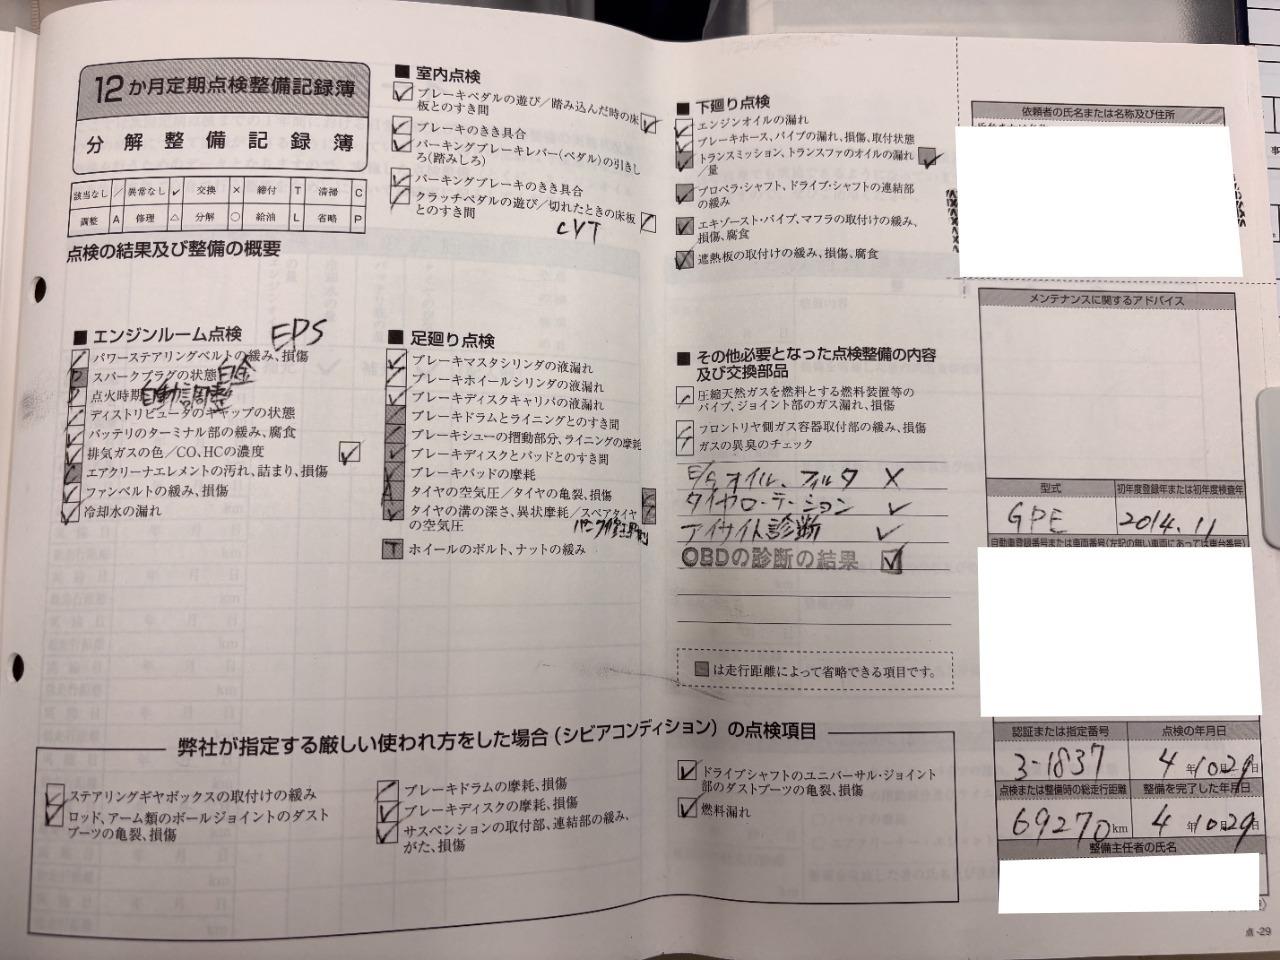 12か月定期点検整備記録簿
分解整備記録簿
該当なし ／ 異常なし ✓ 交換 × 締付 T 清掃 C
調整 A 修理 △ 分解 ○ 給油 L 省略 P
点検の結果及び整備の概要
■ エンジンルーム点検
EPS
パワーステアリングベルトの緩み、損傷
スパークプラグの状態 白金
点火時期 自動調整
ディストリビュータのキャップの状態
バッテリのターミナル部の緩み、腐食
排気ガスの色／CO、HCの濃度
エアクリーナエレメントの汚れ、詰まり、損傷
ファンベルトの緩み、損傷
冷却水の漏れ
■ 室内点検
ブレーキペダルの遊び／踏み込んだ時の床
板とのすき間
ブレーキのきき具合
パーキングブレーキレバー(ペダル)の引きし
ろ(踏みしろ)
パーキングブレーキのきき具合
クラッチペダルの遊び／切れたときの床板
とのすき間
CVT
■ 足廻り点検
ブレーキマスタシリンダの液漏れ
ブレーキホイールシリンダの液漏れ
ブレーキディスクキャリパの液漏れ
ブレーキドラムとライニングとのすき間
ブレーキシューの摺動部分、ライニングの摩耗
ブレーキディスクとパッドとのすき間
ブレーキパッドの摩耗
タイヤの空気圧／タイヤの亀裂、損傷
タイヤの溝の深さ、異状摩耗／スペアタイヤ
の空気圧
パンク修理剤
ホイールのボルト、ナットの緩み
■ 下廻り点検
エンジンオイルの漏れ
ブレーキホース、パイプの漏れ、損傷、取付状態
トランスミッション、トランスファのオイルの漏れ
／量
プロペラ・シャフト、ドライブ・シャフトの連結部
の緩み
エキゾースト・パイプ、マフラの取付けの緩み、
損傷、腐食
遮熱板の取付けの緩み、損傷、腐食
■ その他必要となった点検整備の内容
及び交換部品
圧縮天然ガスを燃料とする燃料装置等の
パイプ、ジョイント部のガス漏れ、損傷
フロントリヤ側ガス容器取付部の緩み、損傷
ガスの異臭のチェック
E/G オイル、フィルタ ×
タイヤローテーション ✓
アイサイト診断 ✓
OBDの診断の結果 ☑
は走行距離によって省略できる項目です。
弊社が指定する厳しい使われ方をした場合(シビアコンディション)の点検項目
ステアリングギヤボックスの取付けの緩み
ロッド、アーム類のボールジョイントのダスト
ブーツの亀裂、損傷
ブレーキドラムの摩耗、損傷
ブレーキディスクの摩耗、損傷
サスペンションの取付部、連結部の緩み、
がた、損傷
ドライブシャフトのユニバーサル・ジョイント
部のダストブーツの亀裂、損傷
燃料漏れ
依頼者の氏名または名称及び住所
メンテナンスに関するアドバイス
型式 初年度登録年または初年度検査年
GPE 2014.11
自動車登録番号または車両番号(左記の無い車両にあっては車台番号)
認証または指定番号 点検の年月日
3-1837 4年10月29日
点検または整備時の総走行距離 整備を完了した年月日
69270km 4年10月29日
整備主任者の氏名
点-29